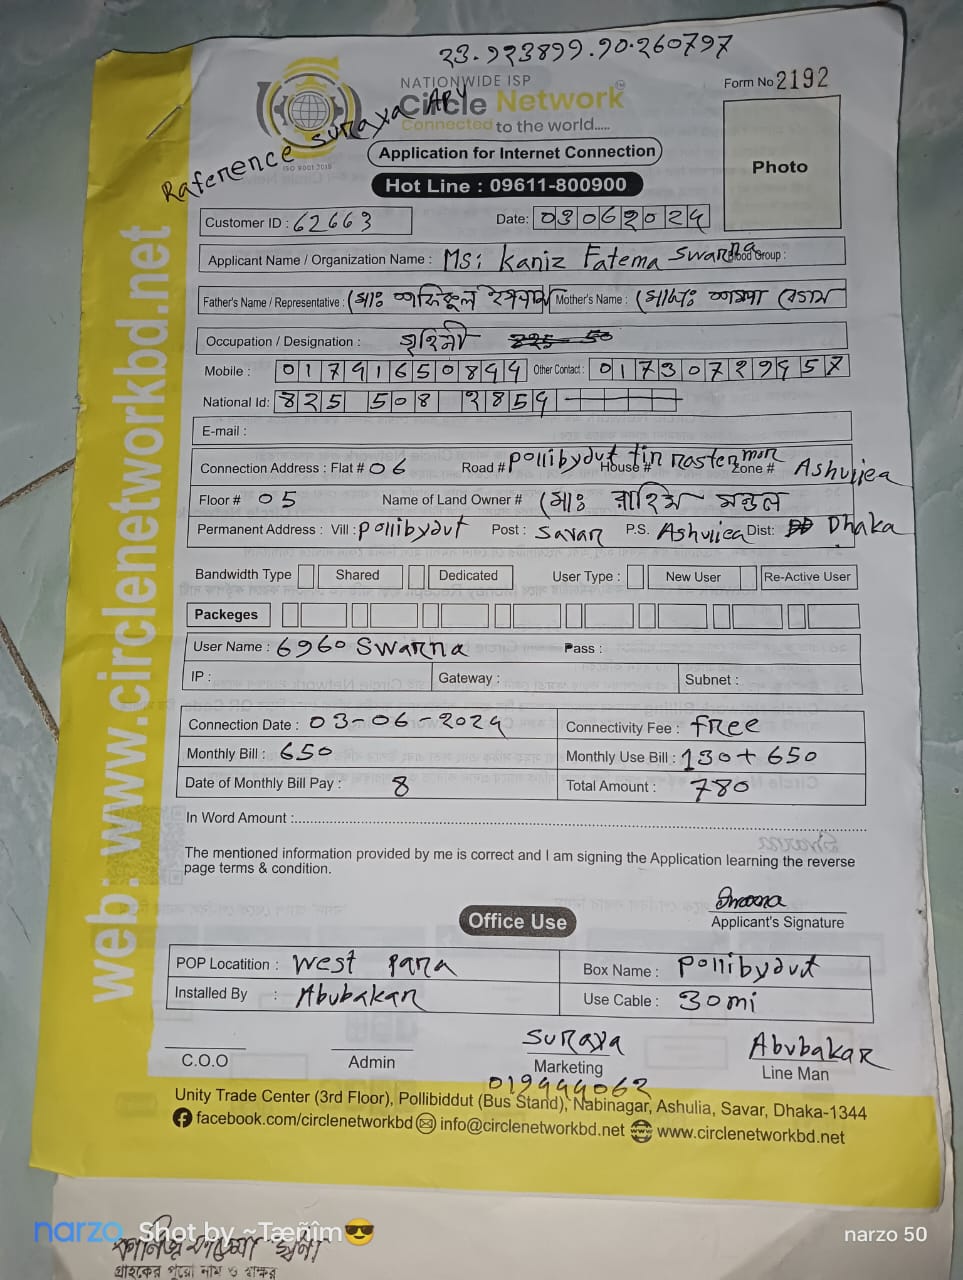 23.923899.90.260797
NATIONWIDE ISP
Circle Network
Connected to the world.....
Form No 2192
Raference Suraya APU
ISO 9001:2015
Application for Internet Connection
Photo
Hot Line : 09611-800900
Customer ID : 62663 Date: 03062024
Applicant Name / Organization Name : MS: Kaniz Fatema Swarna Blood Group :
Father's Name / Representative : মোঃ শফিকুল ইসলাম Mother's Name : মোছাঃ বেগম
Occupation / Designation : গৃহিনী
Mobile : 01791650899 Other Contact : 01730729957
National Id: 825 508 2859
E-mail :
Connection Address : Flat # 06 Road # pollibydut tin raster mor House # Zone # Ashuliea
Floor # 05 Name of Land Owner # মোঃ রাহিম মন্ডল
Permanent Address : Vill : pollibydut Post : Savar P.S. Ashuliea Dist: Dhaka
Bandwidth Type Shared Dedicated User Type : New User Re-Active User
Packeges
User Name : 6960 Swarna Pass :
IP : Gateway : Subnet :
Connection Date : 03-06-2024 Connectivity Fee : free
Monthly Bill : 650 Monthly Use Bill : 130+650
Date of Monthly Bill Pay : 8 Total Amount : 780
In Word Amount :
The mentioned information provided by me is correct and I am signing the Application learning the reverse
page terms & condition.
Applicant's Signature
Office Use
POP Locatition : West Para Box Name : Pollibydut
Installed By : Abubakar Use Cable : 30mi
Suraya Abubakar
C.O.O Admin Marketing Line Man
019444062
Unity Trade Center (3rd Floor), Pollibiddut (Bus Stand), Nabinagar, Ashulia, Savar, Dhaka-1344
facebook.com/circlenetworkbd info@circlenetworkbd.net www.circlenetworkbd.net
web: www.circlenetworkbd.net
narzo Shot by ~Tæñîm😎 narzo 50
কানিজ ফাতেমা স্বর্না
গ্রাহকের পুরো নাম ও স্বাক্ষর